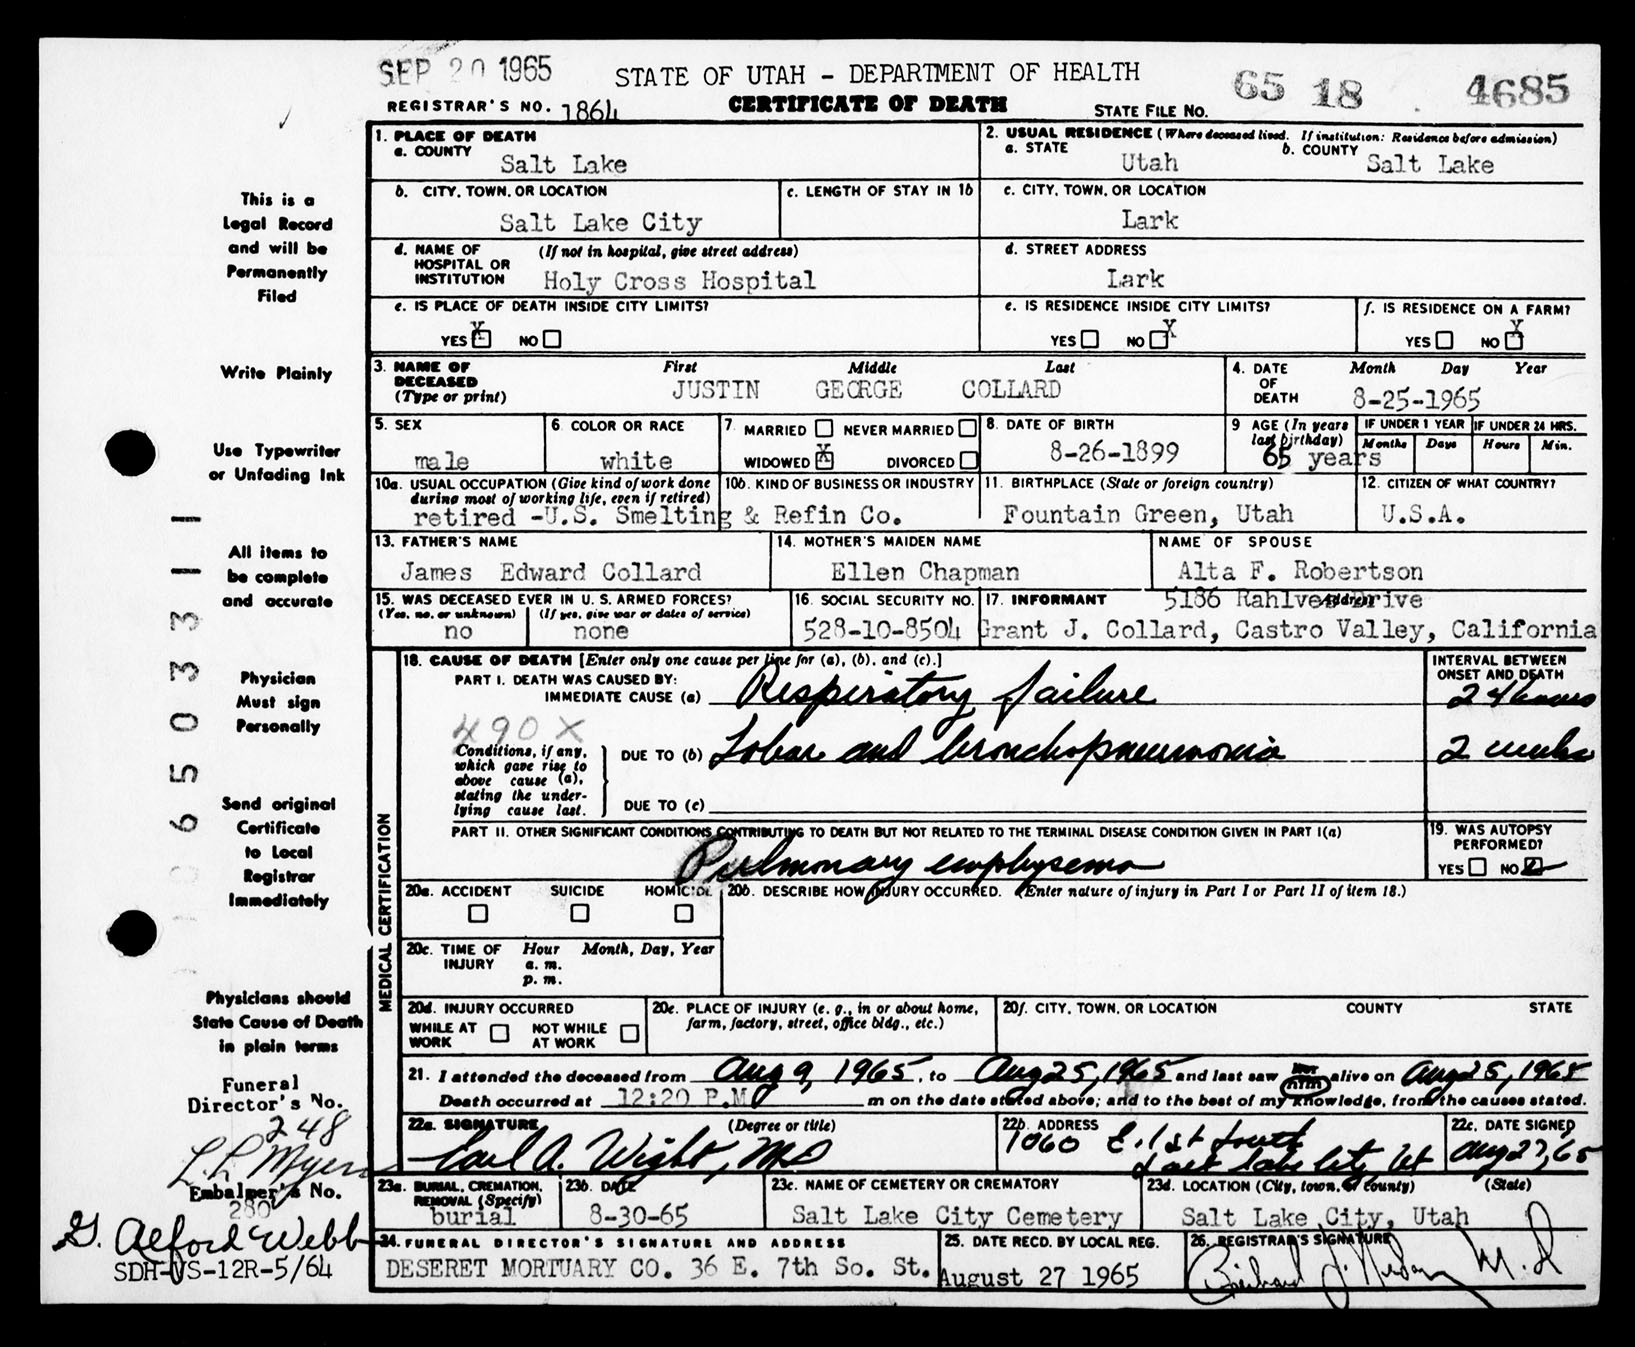 SEP 20 1965
STATE OF UTAH - DEPARTMENT OF HEALTH
65 18 4685
REGISTRAR'S NO. 1864
CERTIFICATE OF DEATH
STATE FILE NO.
1. PLACE OF DEATH
a. COUNTY
Salt Lake
2. USUAL RESIDENCE (Where deceased lived. If institution: Residence before admission)
a. STATE
Utah
b. COUNTY
Salt Lake
b. CITY, TOWN, OR LOCATION
Salt Lake City
c. LENGTH OF STAY IN 1b
c. CITY, TOWN, OR LOCATION
Lark
d. NAME OF HOSPITAL OR INSTITUTION (If not in hospital, give street address)
Holy Cross Hospital
d. STREET ADDRESS
Lark
e. IS PLACE OF DEATH INSIDE CITY LIMITS?
YES X NO
e. IS RESIDENCE INSIDE CITY LIMITS?
YES NO X
f. IS RESIDENCE ON A FARM?
YES NO X
3. NAME OF DECEASED (Type or print)
First Middle Last
JUSTIN GEORGE COLLARD
4. DATE OF DEATH
Month Day Year
8-25-1965
5. SEX
male
6. COLOR OR RACE
white
7. MARRIED NEVER MARRIED
WIDOWED X DIVORCED
8. DATE OF BIRTH
8-26-1899
9 AGE (In years last birthday)
65 years
IF UNDER 1 YEAR
Months Days
IF UNDER 24 HRS.
Hours Min.
10a. USUAL OCCUPATION (Give kind of work done during most of working life, even if retired)
10b. KIND OF BUSINESS OR INDUSTRY
retired -U.S. Smelting & Refin Co.
11. BIRTHPLACE (State or foreign country)
Fountain Green, Utah
12. CITIZEN OF WHAT COUNTRY?
U.S.A.
13. FATHER'S NAME
James Edward Collard
14. MOTHER'S MAIDEN NAME
Ellen Chapman
NAME OF SPOUSE
Alta F. Robertson
15. WAS DECEASED EVER IN U.S. ARMED FORCES?
(Yes, no, or unknown) (If yes, give war or dates of service)
no none
16. SOCIAL SECURITY NO.
528-10-8504
17. INFORMANT Address
5186 Rahlves Drive
Grant J. Collard, Castro Valley, California
MEDICAL CERTIFICATION
18. CAUSE OF DEATH [Enter only one cause per line for (a), (b), and (c).]
INTERVAL BETWEEN ONSET AND DEATH
PART I. DEATH WAS CAUSED BY:
IMMEDIATE CAUSE (a) Respiratory failure
490X
Conditions, if any, which gave rise to above cause (a), stating the underlying cause last.
DUE TO (b) Lobar and bronchopneumonia 2 weeks
DUE TO (c)
PART II. OTHER SIGNIFICANT CONDITIONS CONTRIBUTING TO DEATH BUT NOT RELATED TO THE TERMINAL DISEASE CONDITION GIVEN IN PART I(a)
Pulmonary emphysema
19. WAS AUTOPSY PERFORMED?
YES NO
20a. ACCIDENT SUICIDE HOMICIDE
20b. DESCRIBE HOW INJURY OCCURRED. (Enter nature of injury in Part I or Part II of item 18.)
20c. TIME OF INJURY Hour Month, Day, Year
a. m.
p. m.
20d. INJURY OCCURRED
WHILE AT WORK NOT WHILE AT WORK
20e. PLACE OF INJURY (e. g., in or about home, farm, factory, street, office bldg., etc.)
20f. CITY, TOWN, OR LOCATION COUNTY STATE
21. I attended the deceased from Aug 9, 1965, to Aug 25, 1965 and last saw her him alive on Aug 25, 1965
Death occurred at 12:20 P.M m on the date stated above; and to the best of my knowledge, from the causes stated.
22a. SIGNATURE (Degree or title)
Earl A. Wight, MD
22b. ADDRESS
1060 E. 1st South
Salt Lake City, Ut
22c. DATE SIGNED
Aug 27, 65
23a. BURIAL, CREMATION, REMOVAL (Specify)
burial
23b. DATE
8-30-65
23c. NAME OF CEMETERY OR CREMATORY
Salt Lake City Cemetery
23d. LOCATION (City, town, or county) (State)
Salt Lake City, Utah
24. FUNERAL DIRECTOR'S SIGNATURE AND ADDRESS
DESERET MORTUARY CO. 36 E. 7th So. St.
25. DATE RECD. BY LOCAL REG.
August 27 1965
26. REGISTRAR'S SIGNATURE
M.D
This is a
Legal Record
and will be
Permanently
Filed
Write Plainly
Use Typewriter
or Unfading Ink
All items to
be complete
and accurate
Physician
Must sign
Personally
Send original
Certificate
to Local
Registrar
Immediately
Physicians should
State Cause of Death
in plain terms
Funeral
Director's No.
248
Embalmer's No.
280
G. Alford Webb
SDH-VS-12R-5/64